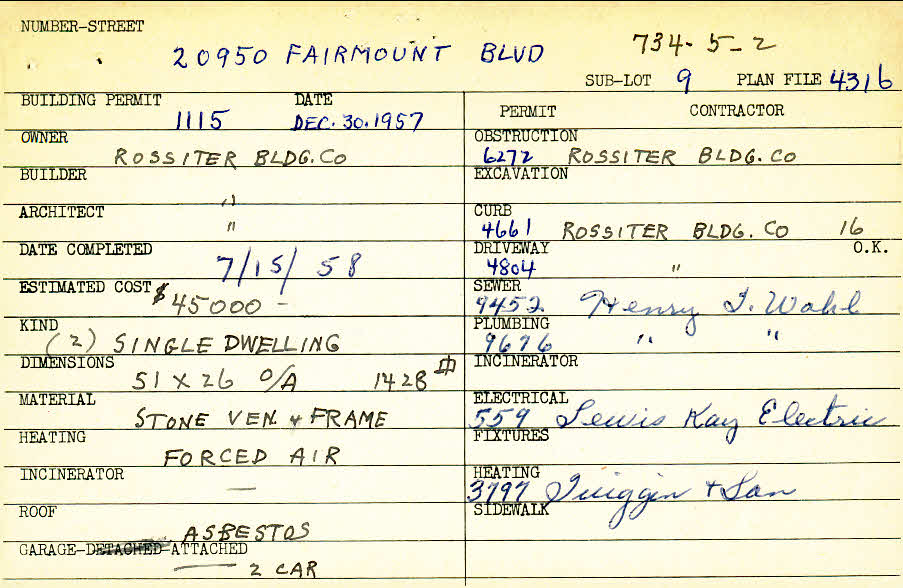 NUMBER-STREET
20950 FAIRMOUNT BLVD 734-5-2
SUB-LOT 9 PLAN FILE 4316
BUILDING PERMIT 1115 DATE DEC. 30. 1957
OWNER ROSSITER BLDG. CO
BUILDER "
ARCHITECT "
DATE COMPLETED 7/15/58
ESTIMATED COST $45000 -
KIND (2) SINGLE DWELLING
DIMENSIONS 51 X 26 O/A 1428
MATERIAL STONE VEN. + FRAME
HEATING FORCED AIR
INCINERATOR —
ROOF ASBESTOS
GARAGE-DETACHED-ATTACHED
2 CAR
PERMIT CONTRACTOR
OBSTRUCTION
6272 ROSSITER BLDG. CO
EXCAVATION
CURB
4661 ROSSITER BLDG. CO 16
DRIVEWAY O.K.
4804 "
SEWER
9452 Henry J. Wahl
PLUMBING
9676 " "
INCINERATOR
ELECTRICAL
559 Lewis Kay Electric
FIXTURES
HEATING
3797 Quiggin + Son
SIDEWALK